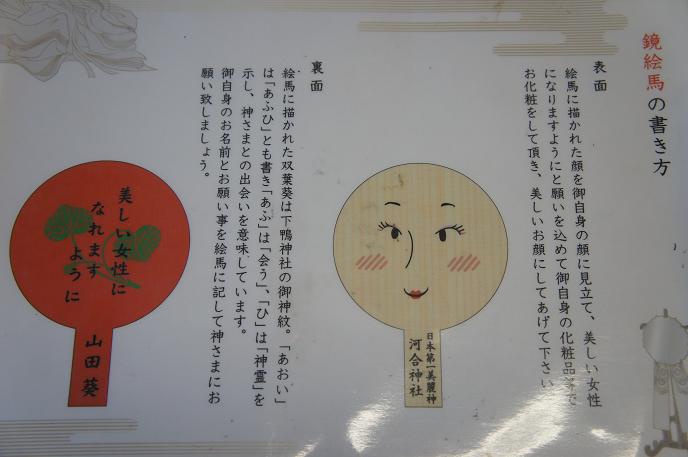 鏡絵馬の書き方
表面
絵馬に描かれた顔を御自身の顔に見立て、美しい女性
になりますようにと願いを込めて御自身の化粧品等で
お化粧をして頂き、美しいお顔にしてあげて下さい
日本第一美麗神
河合神社
裏面
絵馬に描かれた双葉葵は下鴨神社の御神紋。「あおい」
は「あふひ」とも書き「あふ」は「会う」、「ひ」は「神霊」を
示し、神さまとの出会いを意味しています。
御自身のお名前とお願い事を絵馬に記して神さまにお
願い致しましょう。
美しい女性に
なれます
ように
山田葵